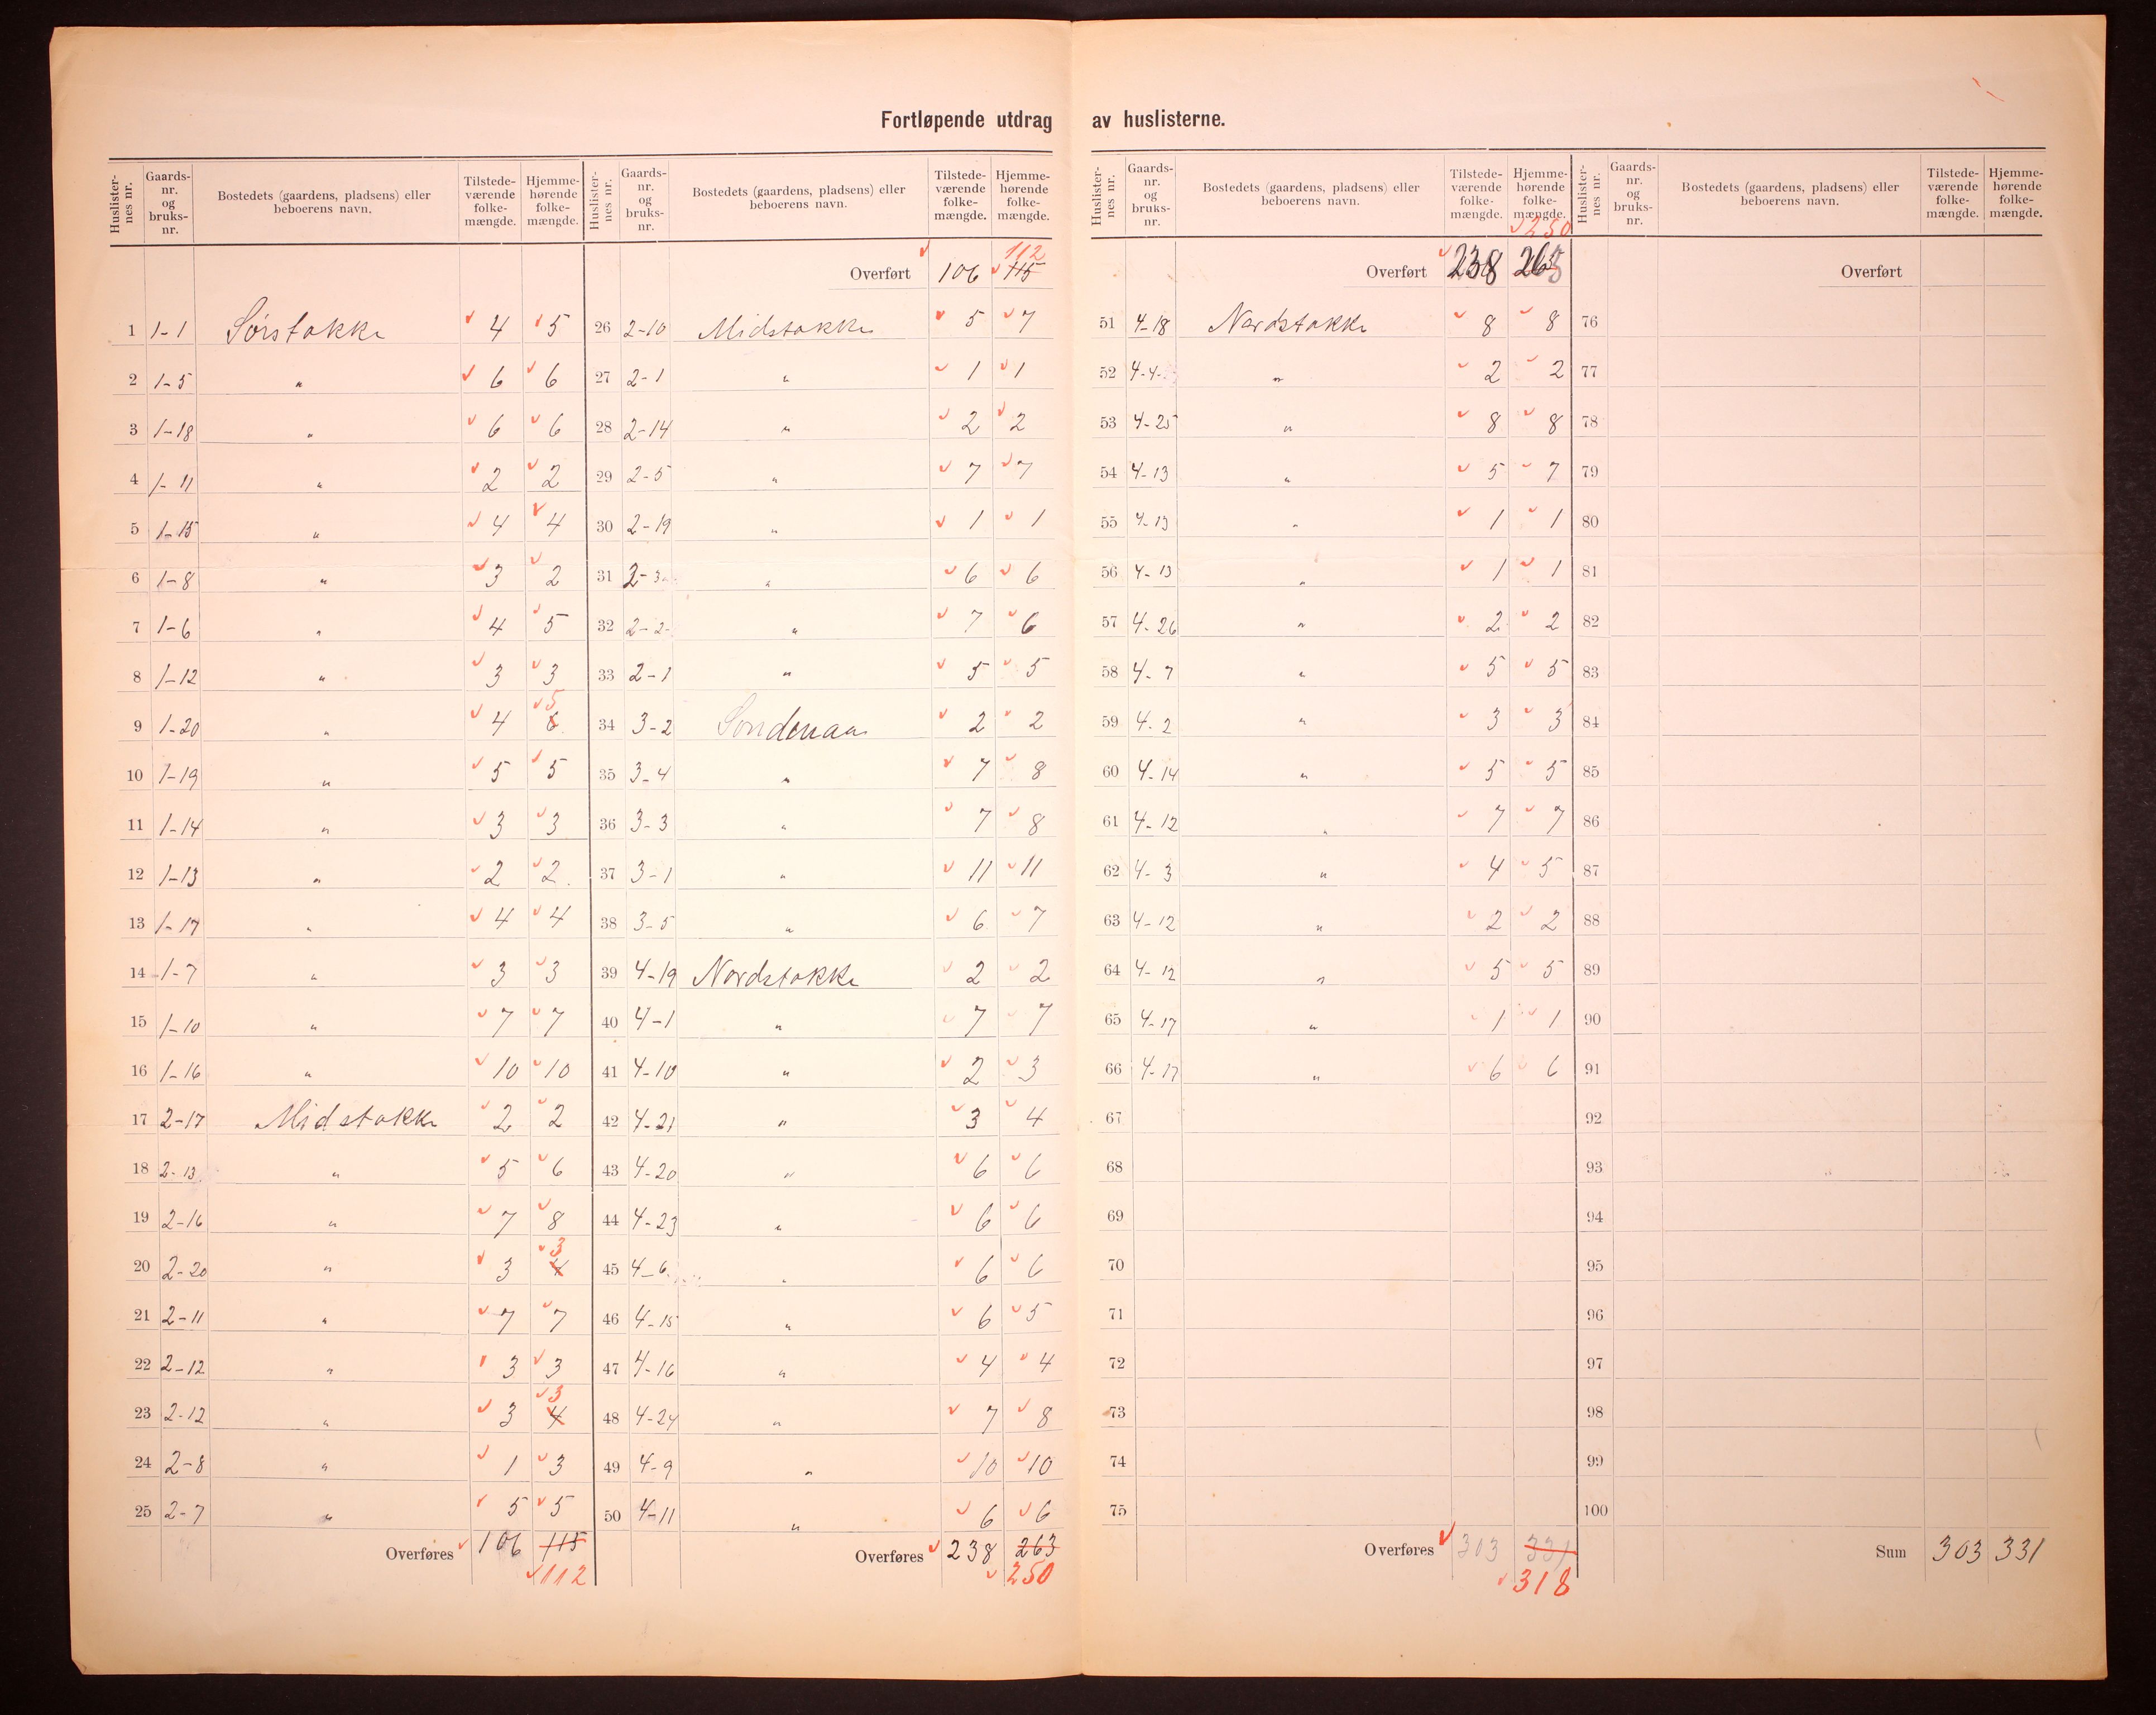 Fortløpende utdrag av huslisterne.
Huslisternes nr. Gaards-nr. og bruks-nr. Bostedets (gaardens, pladsens) eller beboerens navn. Tilstedeværende folkemængde. Hjemmehørende folkemængde.
1 1-1 Sørstokke 4 5
2 1-5 " 6 6
3 1-18 " 6 6
4 1-11 " 2 2
5 1-15 " 4 4
6 1-8 " 3 2
7 1-6 " 4 5
8 1-12 " 3 3
9 1-20 " 4 6 5
10 1-19 " 5 5
11 1-14 " 3 3
12 1-13 " 2 2
13 1-17 " 4 4
14 1-7 " 3 3
15 1-10 " 7 7
16 1-16 " 10 10
17 2-17 Midstokke 2 2
18 2-13 " 5 6
19 2-16 " 7 8
20 2-20 " 3 4 3
21 2-11 " 7 7
22 2-12 " 3 3
23 2-12 " 3 4 3
24 2-8 " 1 3
25 2-7 " 5 5
Overføres 106 115
112
Huslisternes nr. Gaards-nr. og bruks-nr. Bostedets (gaardens, pladsens) eller beboerens navn. Tilstedeværende folkemængde. Hjemmehørende folkemængde.
112
Overført 106 115
26 2-10 Midstokke 5 7
27 2-1 " 1 1
28 2-14 " 2 2
29 2-5 " 7 7
30 2-19 " 1 1
31 2-3 " 6 6
32 2-2 " 7 6
33 2-1 " 5 5
34 3-2 Sondenaa 2 2
35 3-4 " 7 8
36 3-3 " 7 8
37 3-1 " 11 11
38 3-5 " 6 7
39 4-19 Nordstokke 2 2
40 4-1 " 7 7
41 4-10 " 2 3
42 4-21 " 3 4
43 4-20 " 6 6
44 4-23 " 6 6
45 4-6 " 6 6
46 4-15 " 6 5
47 4-16 " 4 4
48 4-24 " 7 8
49 4-9 " 10 10
50 4-11 " 6 6
Overføres 238 263
250
Huslisternes nr. Gaards-nr. og bruks-nr. Bostedets (gaardens, pladsens) eller beboerens navn. Tilstedeværende folkemængde. Hjemmehørende folkemængde.
250
Overført 238 263
51 4-18 Nordstokke 8 8
52 4-4 " 2 2
53 4-25 " 8 8
54 4-13 " 5 7
55 4-13 " 1 1
56 4-13 " 1 1
57 4-26 " 2 2
58 4-7 " 5 5
59 4-2 " 3 3
60 4-14 " 5 5
61 4-12 " 7 7
62 4-3 " 4 5
63 4-12 " 2 2
64 4-12 " 5 5
65 4-17 " 1 1
66 4-17 " 6 6
67
68
69
70
71
72
73
74
75
Overføres 303 331
318
Huslisternes nr. Gaards-nr. og bruks-nr. Bostedets (gaardens, pladsens) eller beboerens navn. Tilstedeværende folkemængde. Hjemmehørende folkemængde.
Overført
76
77
78
79
80
81
82
83
84
85
86
87
88
89
90
91
92
93
94
95
96
97
98
99
100
Sum 303 331